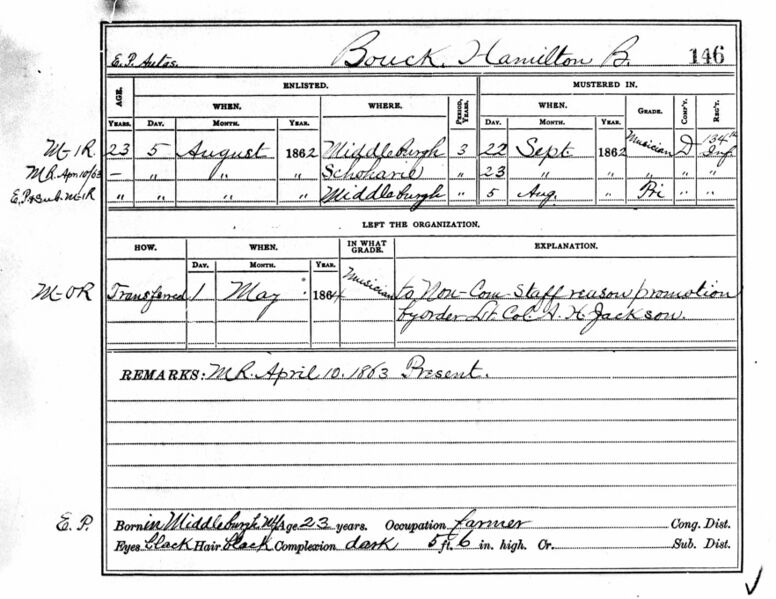 E.P. Autos. Bouck, Hamilton B. 146
AGE. ENLISTED. MUSTERED IN.
WHEN. WHERE. PERIOD, YEARS. WHEN. GRADE. COMP'Y. REG'T.
YEARS. DAY. MONTH. YEAR. DAY. MONTH. YEAR.
M-I R. 23 5 August 1862 Middleburgh 3 22 Sept 1862 Musician D 134th Inf.
M.R. Apr. 10/63 – " " " Schoharie " 23 " " " " "
E.P. & Sub. M-I R " " " " Middleburgh " 5 Aug. " Pri " "
LEFT THE ORGANIZATION.
HOW. WHEN. IN WHAT GRADE. EXPLANATION.
DAY. MONTH. YEAR.
M-O R Transferred 1 May 1864 Musician to Non-Com-Staff reason promotion
by order Lt. Col. A. H. Jackson.
REMARKS: M.R. April 10. 1863 Present.
E.P. Born in Middleburgh NY Age 23 years. Occupation farmer Cong. Dist.
Eyes black Hair black Complexion dark 5 ft. 6 in. high. Cr. Sub. Dist.